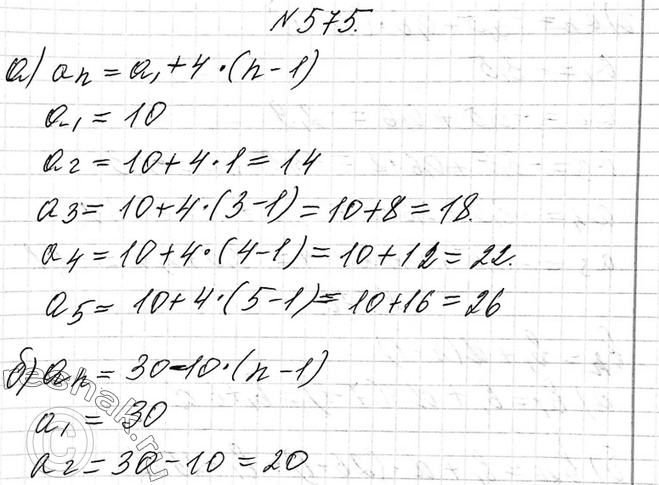 №575.
а) aₙ = a₁ + 4·(n-1)
a₁ = 10
a₂ = 10+4·1 = 14
a₃ = 10+4·(3-1) = 10+8 = 18.
a₄ = 10+4·(4-1) = 10+12 = 22.
a₅ = 10+4·(5-1) = 10+16 = 26
б) aₙ = 30-10·(n-1)
a₁ = 30
a₂ = 30-10 = 20